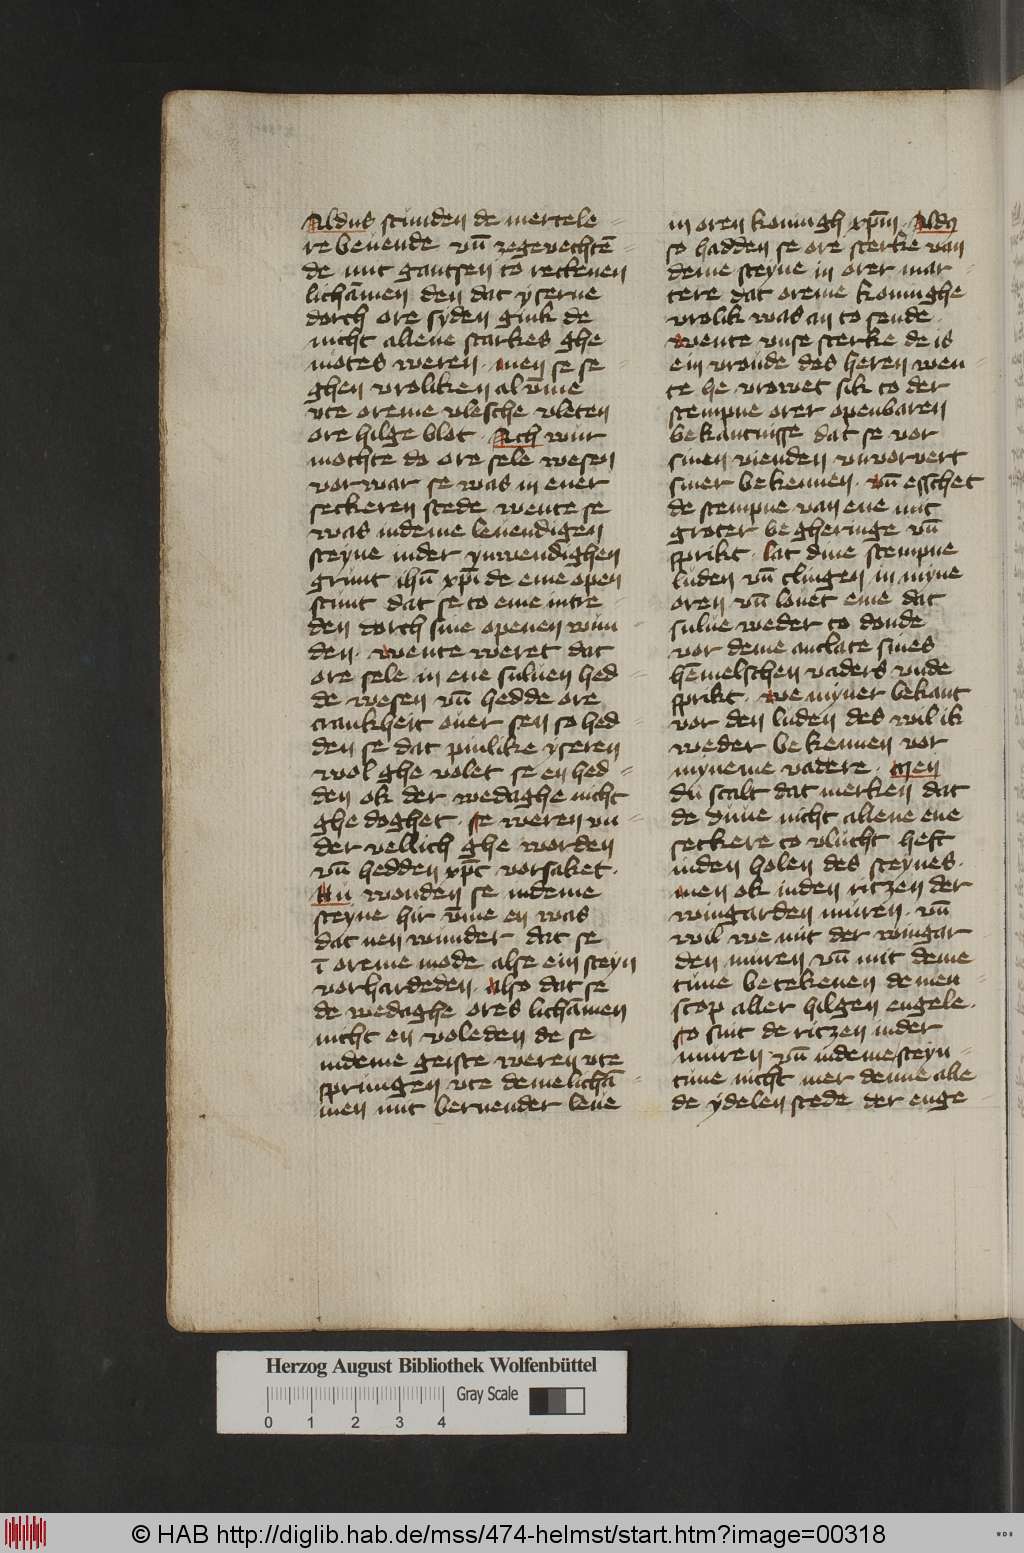 Aldus stunden de mertele
re beuende vn̄ zegevechtē
de mit gantsen to reckenen
lichāmen den dat yserne
dorch ore syden gink de
nicht allene starkes ghe
motes weren . men se se
ghen vroliken al vm̄e
vte oreme vlesche vleten
ore hilge blot . Ach wur
mochte do ore sele wesen
vorwar se was in ener
seckeren stede wente se
was indeme leuendigen
steyne inder ynwendighen
grunt ihū xp̄i de eme open
stunt dat se to eme intre
den dorch sine openen wun
den . wente weret dat
ore sele in ene suluen hed
de wesen vn̄ hedde ore
crankheit ouer sen so hed
den se dat pinlike yseren
wol ghe volet se en hed
den ok der wedaghe nicht
ghe doghet . se weren vn
der vellich ghe worden
vn̄ hedden xp̄c vorsaket .
Nu wonden se indeme
steyne hir vm̄e en was
dat nen wunder dat se
ī oreme mode alse ein steyn
vorhardeden . also dat se
de wedaghe ores lichāmen
nicht en voleden de se
indeme geiste weren vte
sprungen vte deme lichā
men mit bernender leue
in oren koningh xp̄m . Aldꝰ
so hadden se ore sterke van
deme steyne in orer mar
tere dat oreme koninghe
vrolik was an to sende .
wente vnse sterke de is
ein vronde des heren wen
te he vrowet sik to der
stempne orer openbaren
bekantnisse dat se vor
sinen vienden vnvorvert
siner bekennen . vn̄ esschet
de stempne van ene mit
groter begheringe vn̄
sprikt . lat dine stempne
luden vn̄ clingen in myne
oren vn̄ louet eme dat
sulue weder to donde
vor deme anclate sines
hēmelschen vaders vnde
sprikt . we myner bekant
vor den luden des wil ik
weder bekennen vor
myneme vadere . Men
du scalt dat merken dat
de duue nicht allene ene
seckere to vlucht heft
inden holen des steynes .
men ok inden ritzen der
wingarden muren . vn̄
wil we mit der wingar
den muren vn̄ mit deme
tune betekenen de men
scop aller hilgen engele .
so sint de ritzen inder
muren vn̄ indeme steyn
tune nicht mer denne alle
de ydelen stede der enge
Herzog August Bibliothek Wolfenbüttel
Gray Scale
0 1 2 3 4
© HAB http://diglib.hab.de/mss/474-helmst/start.htm?image=00318